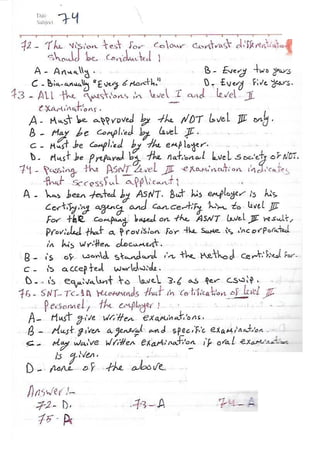 Title
Subject 74
72 - The vision test for colour contrast differentiation
should be conducted !
A - Anually. B - Every two years
C - Bin-anually "Every 6 Month." D. Every Five Years.
73 - All the questions in level I and level II
examinations.
A - Must be approved by the NDT level III only.
B - May be Complied by level II.
C - Must be Complied by the employer.
D. Must be prepared by the national level society of NDT.
74 - Passing the ASNT level III examination indicates
that successful applicant !
A - has been tested by ASNT. But his employer is his
Certifying agency and can certify him to level III
For the Company based on the ASNT level III result,
Provided that a Provision for the same is incorporated
in his written document.
B - is of world standard in the Method certified for.
C - is accepted worldwide.
D - is equivalant to level 3.6 as per CSWIP.
75 - SNT-TC-1A Recommends that in Certification of level III
Personnel, the employer !
A - Must give written examinations.
B - Must given a general and specific examination.
C - May waive written examination if oral examination
is given.
D - none of the above
Answer !-
72 - D. 73 - A 74 - A
75 - A